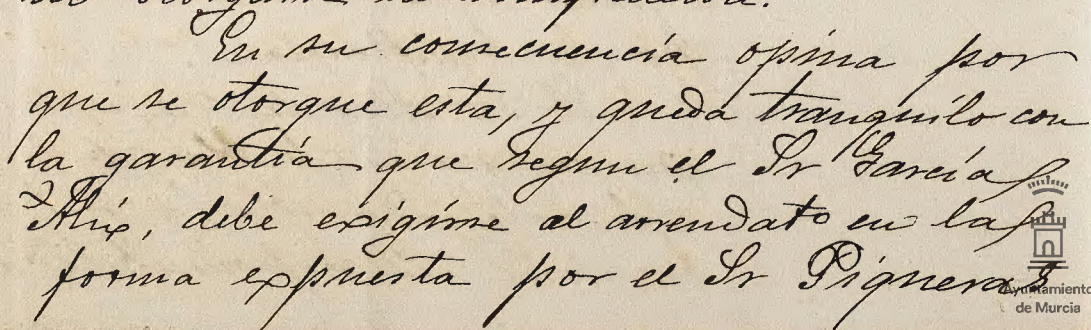 En su consecuencia opina por
que se otorgue esta, y queda tranquilo con
la garantía que segun el Sr García
Alix, debe exigirse al arrendatº en la
forma expuesta por el Sr Piqueras
Ayuntamiento
de Murcia